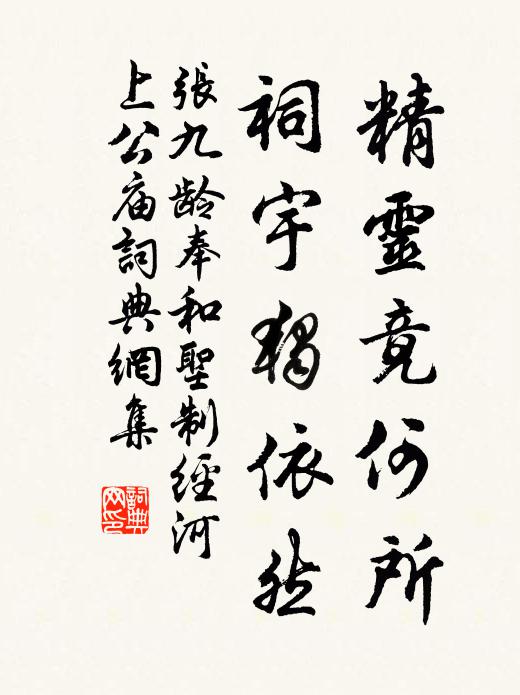 精靈竟何所
祠宇獨依然
張九龄奉和聖制經河
上公庙詞典網集
詞典网印